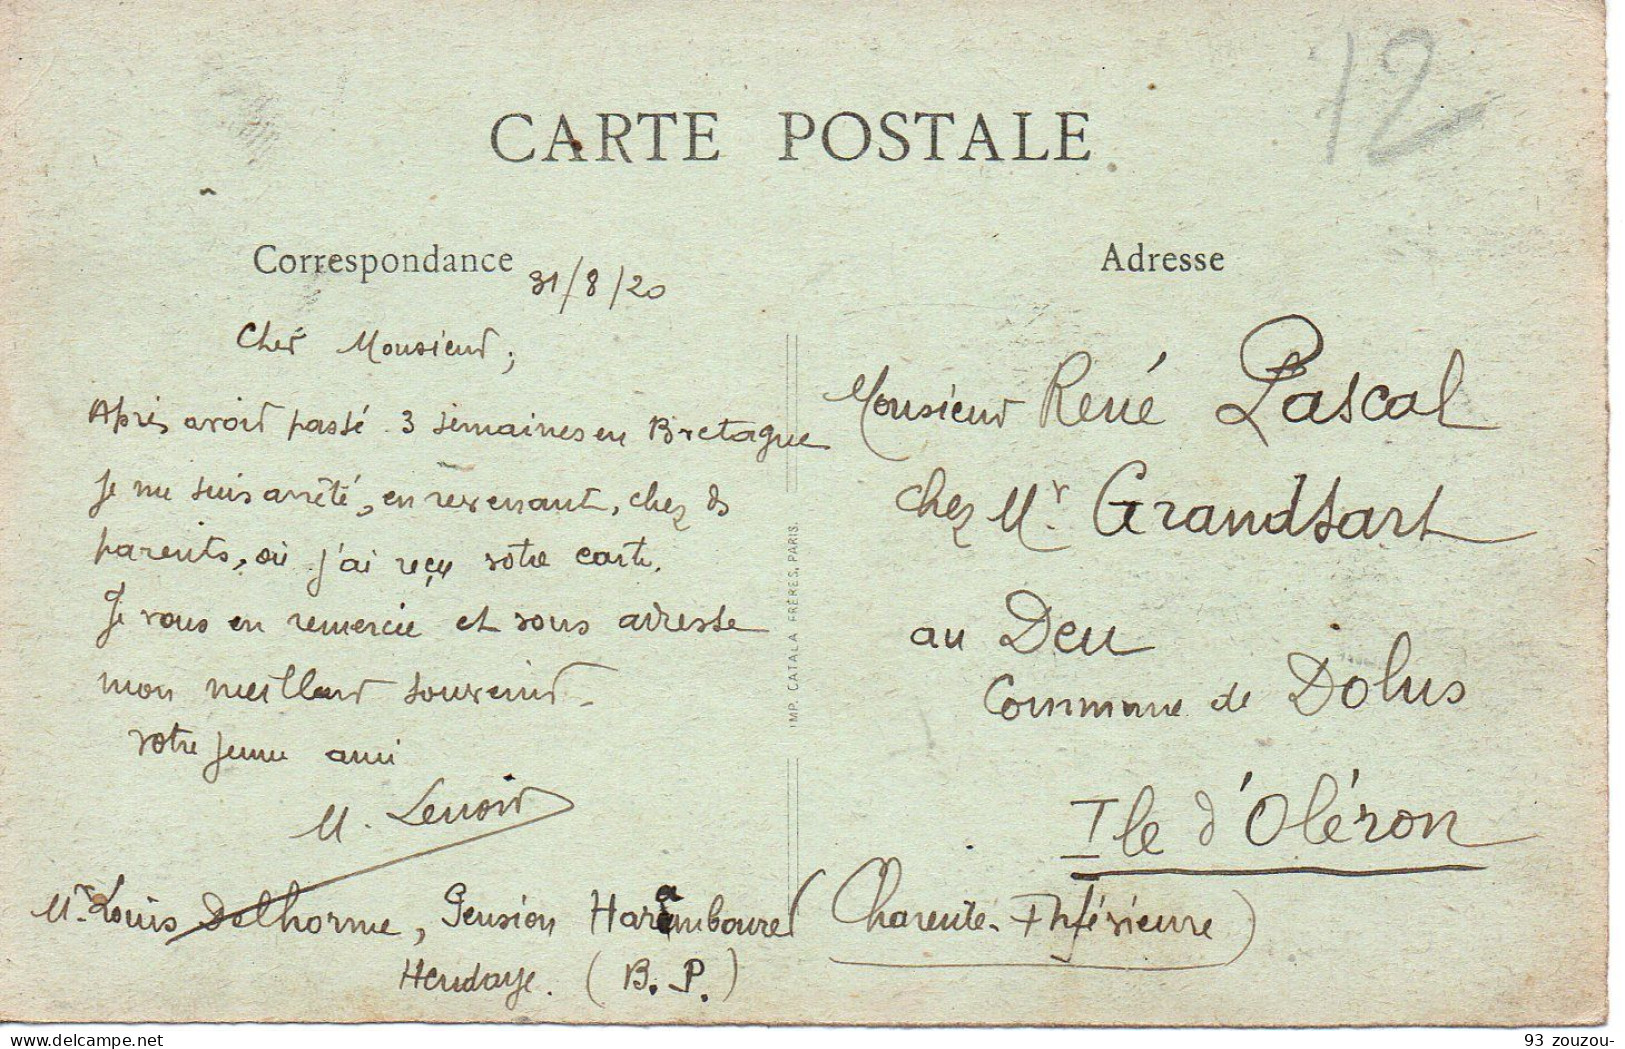 12
CARTE POSTALE
Correspondance
31/8/20
Cher Monsieur,
Après avoir passé 3 semaines en Bretagne
je me suis arrêté, en revenant, chez ds
parents, où j'ai reçu votre carte.
Je vous en remercie et vous adresse
mon meilleur souvenir.
Votre jeune ami
M. Lenoir
Mr. Louis Delhorme, Pension Harambourel
Hendaye. (B. P.)
IMP. CATALA FRÈRES, PARIS.
Adresse
Monsieur René Pascal
chez Mr. Grandsart
au Deu
Commune de Dolus
Ile d'Oléron
(Charente-Inférieure)
93 zouzou-